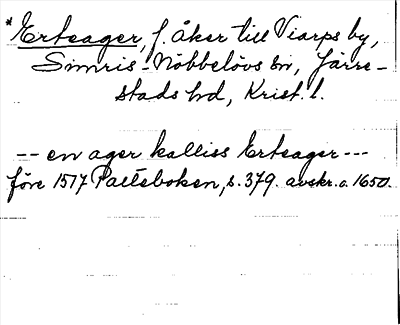 * Ertsager, f. åker till Viarps by,
Simris-Nöbbelövs sn, Järre-
stads hd, Krist. l.
-- en ager kalliss Ertsager ---
före 1517 Palteboken, s. 379. avskr. c. 1650.